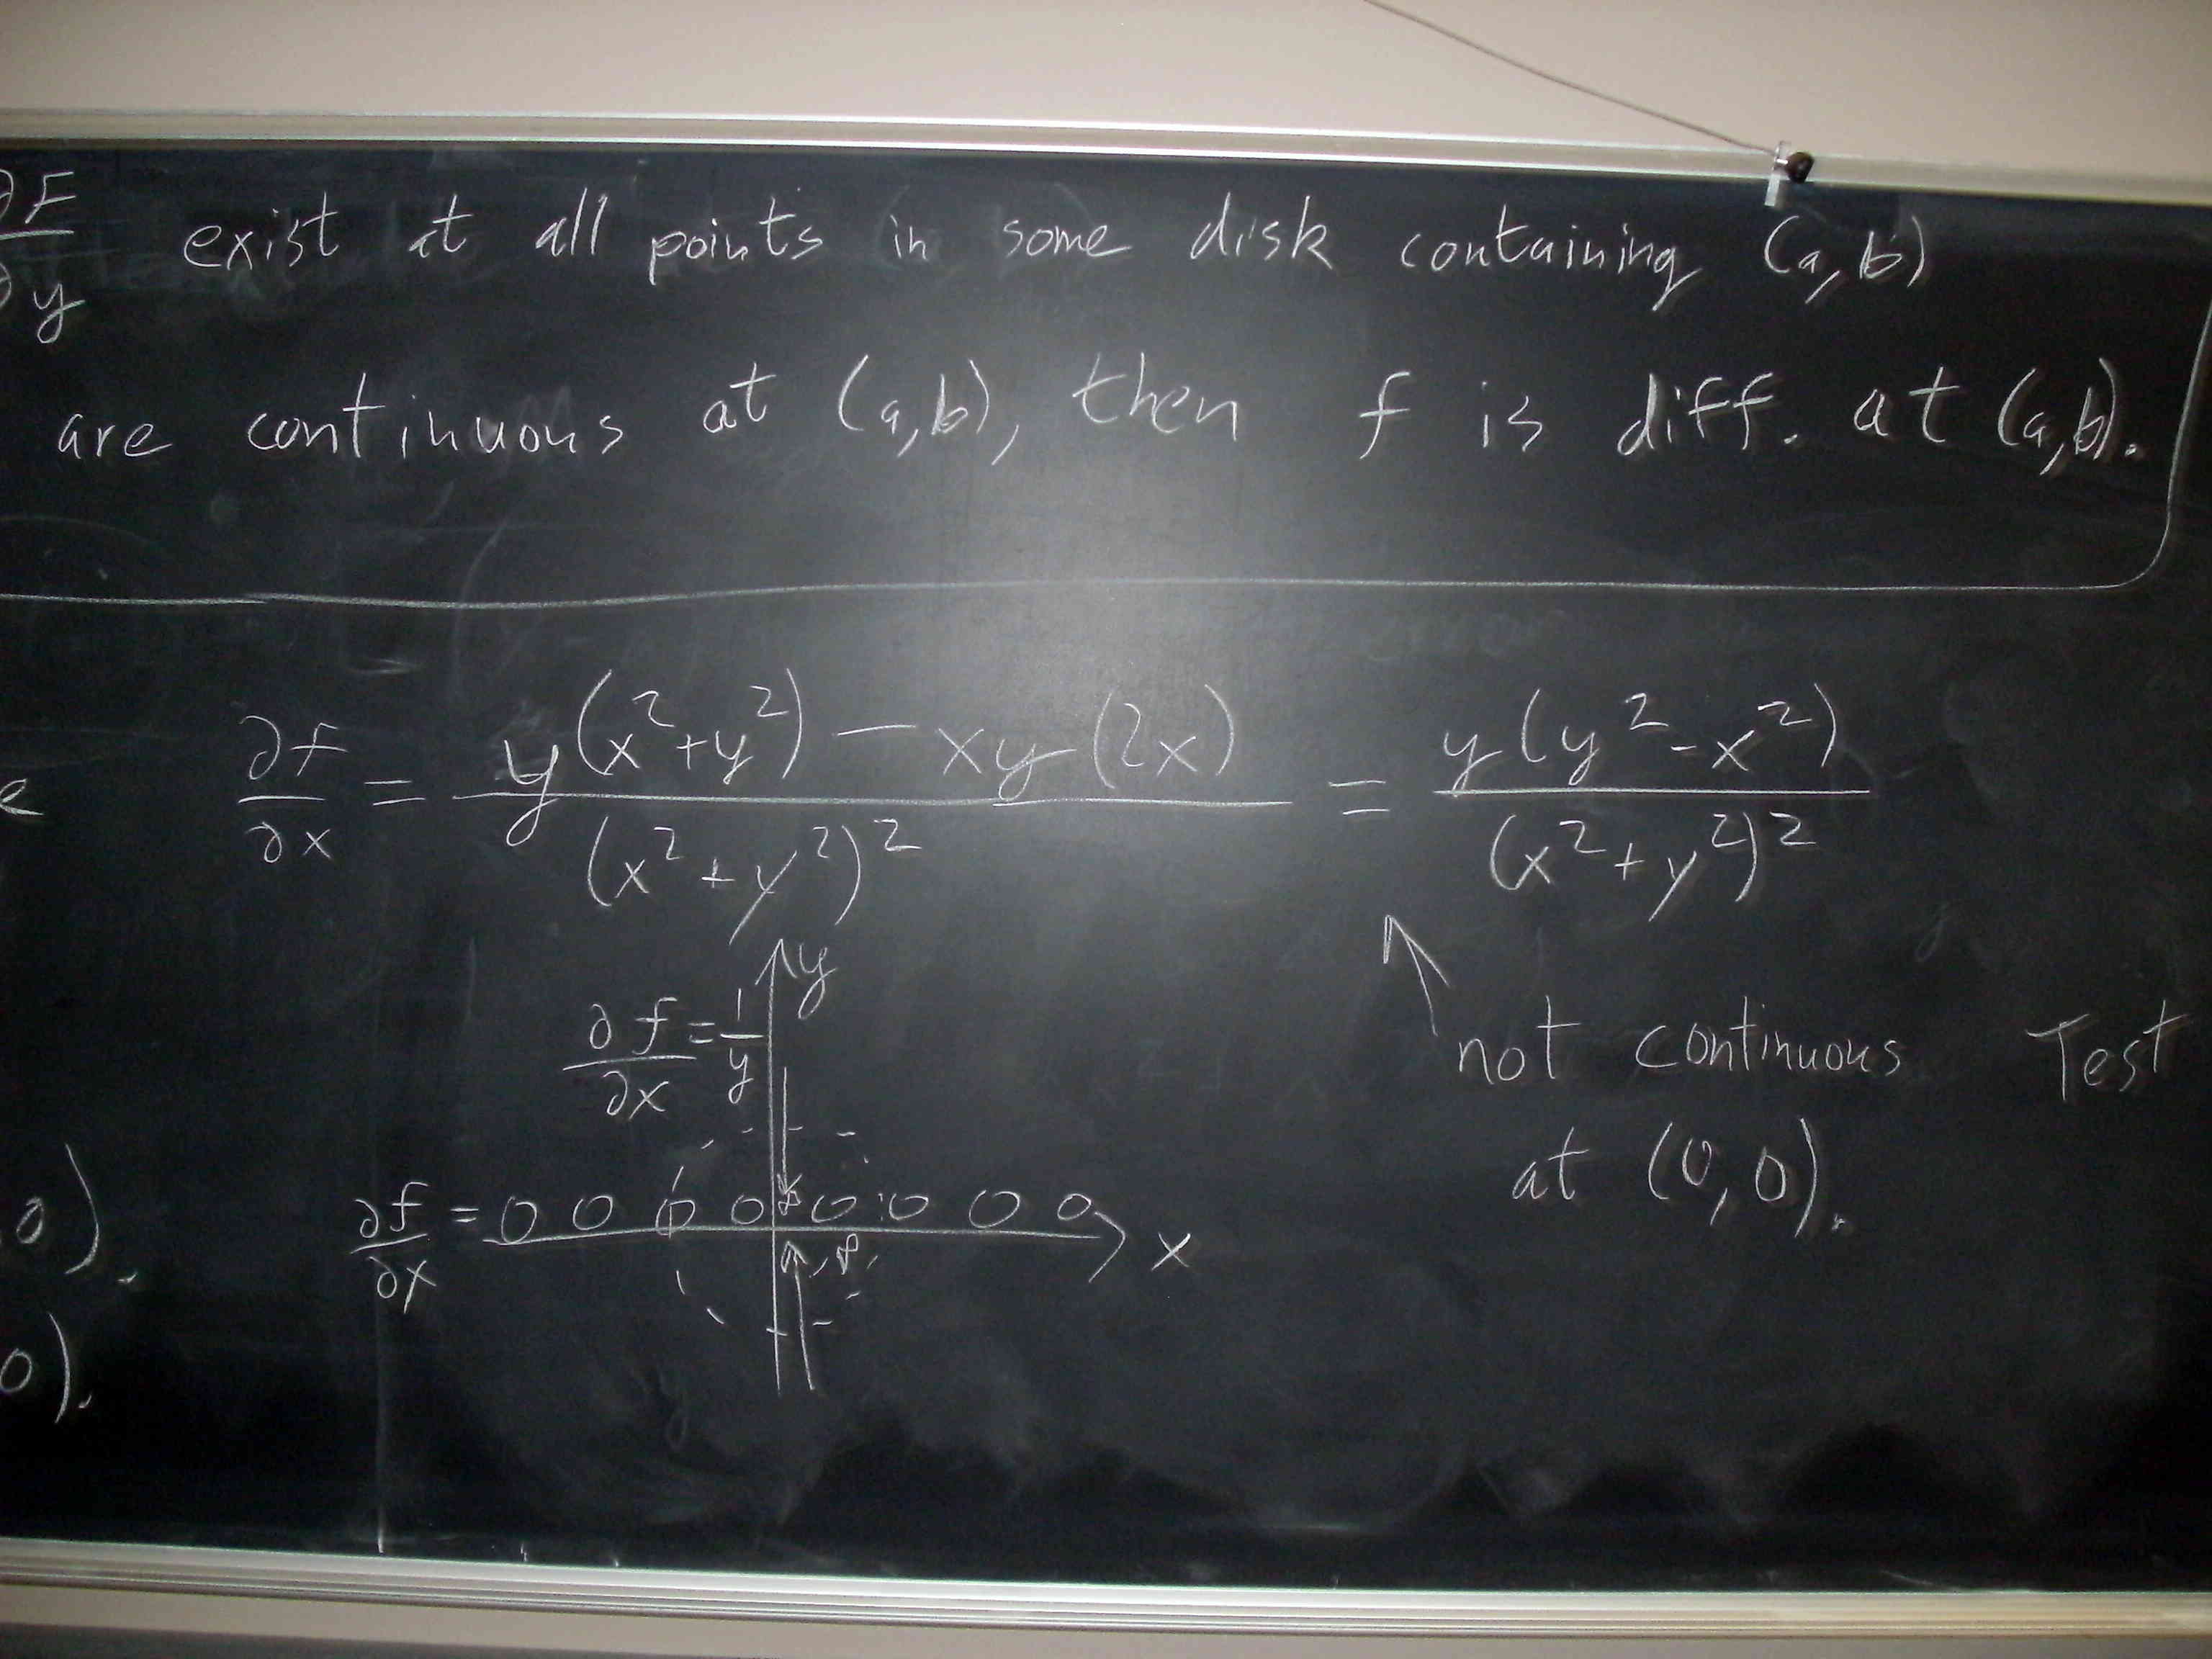 ∂F/∂y exist at all points in some disk containing (a,b)
are continuous at (a,b), then f is diff. at (a,b).
e ∂f/∂x = y(x²+y²) - xy(2x) / (x²+y²)² = y(y²-x²) / (x²+y²)²
y
∂f/∂x = 1/y
not continuous Test
at (0,0).
0).
∂f/∂x = 0 0 0 0 0 0 0 0 x
0).